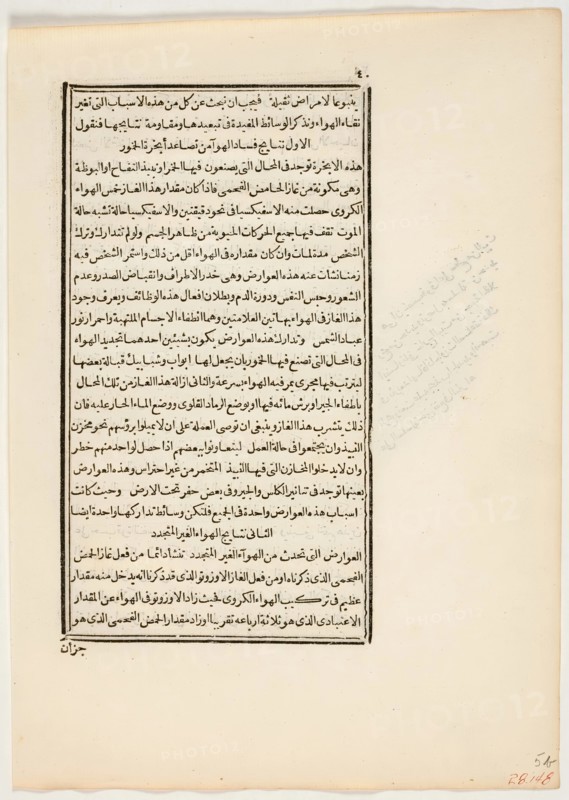 ٤٠
ينبوعا لامراض ثقيلة فيجب ان نبحث عن كل من هذه الاسباب التى تغير
نقاء الهواء ونذكر الوسائط المفيدة فى تبعيدها ومقاومة نتايجها فنقول
الاول نتايج فساد الهوا من تصاعد أبخرة الخمور
هذه الابخرة توجد فى المحال التى يصنعون فيها الخمر او نبيذ التفاح او البوظة
وهى مكونة من غاز الحامض الفحمى فاذا كان مقدار هذا الغاز خمس الهواء
الكروى حصلت منه الاسفيكسيا فى نحو دقيقتين والاسفيكسيا حالة تشبه حالة
الموت تقف فيها جميع الحركات الحيوية من ظاهر الجسم ولو لم تتدارك وترك
الشخص مدة لمات وان كان مقداره فى الهواء اقل من ذلك واستمر الشخص فيه
زمنا نشأت عنه هذه العوارض وهى خدر الاطراف وانقباض الصدر وعدم
الشعور وحبس النفس ودورة الدم وبطلان افعال هذه الوظائف ويعرف وجود
هذا الغاز فى الهواء بهاتين العلامتين وهما انطفاء الاجسام الملتهبة واحمرار نور
عباد الشمس وتدارك هذه العوارض يكون بشيئين احدهما تجديد الهواء
فى المحال التى تصنع فيها الخمور بان يجعل لها ابواب وشبابيك قبالة بعضها
ليترتب فيها مجرى يمر فيه الهواء بسرعة والثانى ازالة هذا الغاز من تلك المحال
باطفاء الجير او برش مائه فيها او بوضع الرماد القلوى ووضع الماء الحار عليه فان
ذلك يتشرب هذا الغاز وينبغى ان توصى العملة على ان لا يميلوا برؤسهم نحو مخزن
النبيذ وان يجتمعوا فى حالة العمل ليتعاونوا ببعضهم اذا حصل لواحد منهم خطر
وان لا يدخلوا المخازن التى فيها النبيذ المتخمر من غير احتراس وهذه العوارض
بعينها توجد فى تنانير الكلس والجير وفى بعض حفر تحت الارض وحيث كانت
اسباب هذه العوارض واحدة فى الجميع فلتكن وسائط تداركها واحدة ايضا
الثانى نتايج الهواء الغير المتجدد
العوارض التى تحدث من الهوآء الغير المتجدد تنشأ دائما من فعل غاز الحمض
الفحمى الذى ذكرناه او من فعل الغاز الاوزوتو الذى قد ذكرنا انه يدخل منه مقدار
عظيم فى تركيب الهواء الكروى فحيث زاد الاوزوتو فى الهواء عن المقدار
الاعتيادى الذى هو ثلاثة ارباعه تقريبا او زاد مقدار الحمض الفحمى الذى هو
جزان
28.148